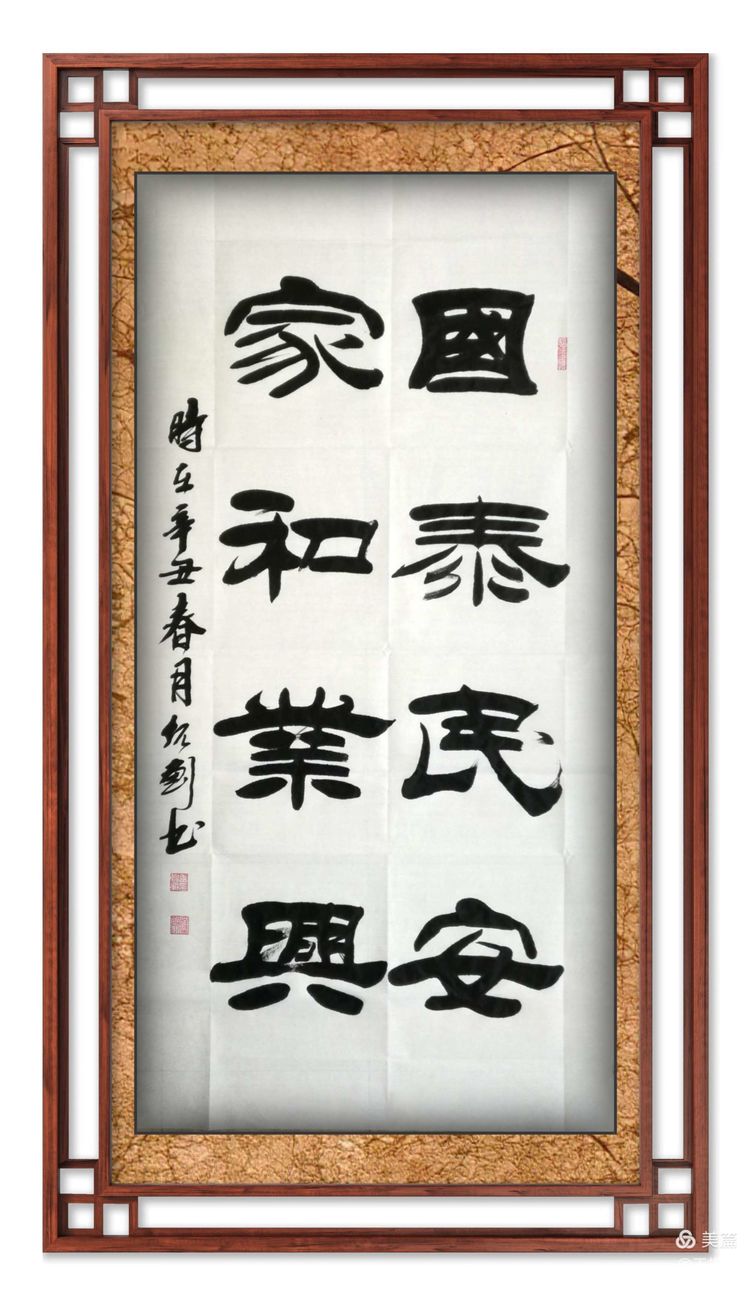 國泰民安
家和業興
時在辛丑春月劍書
美篇